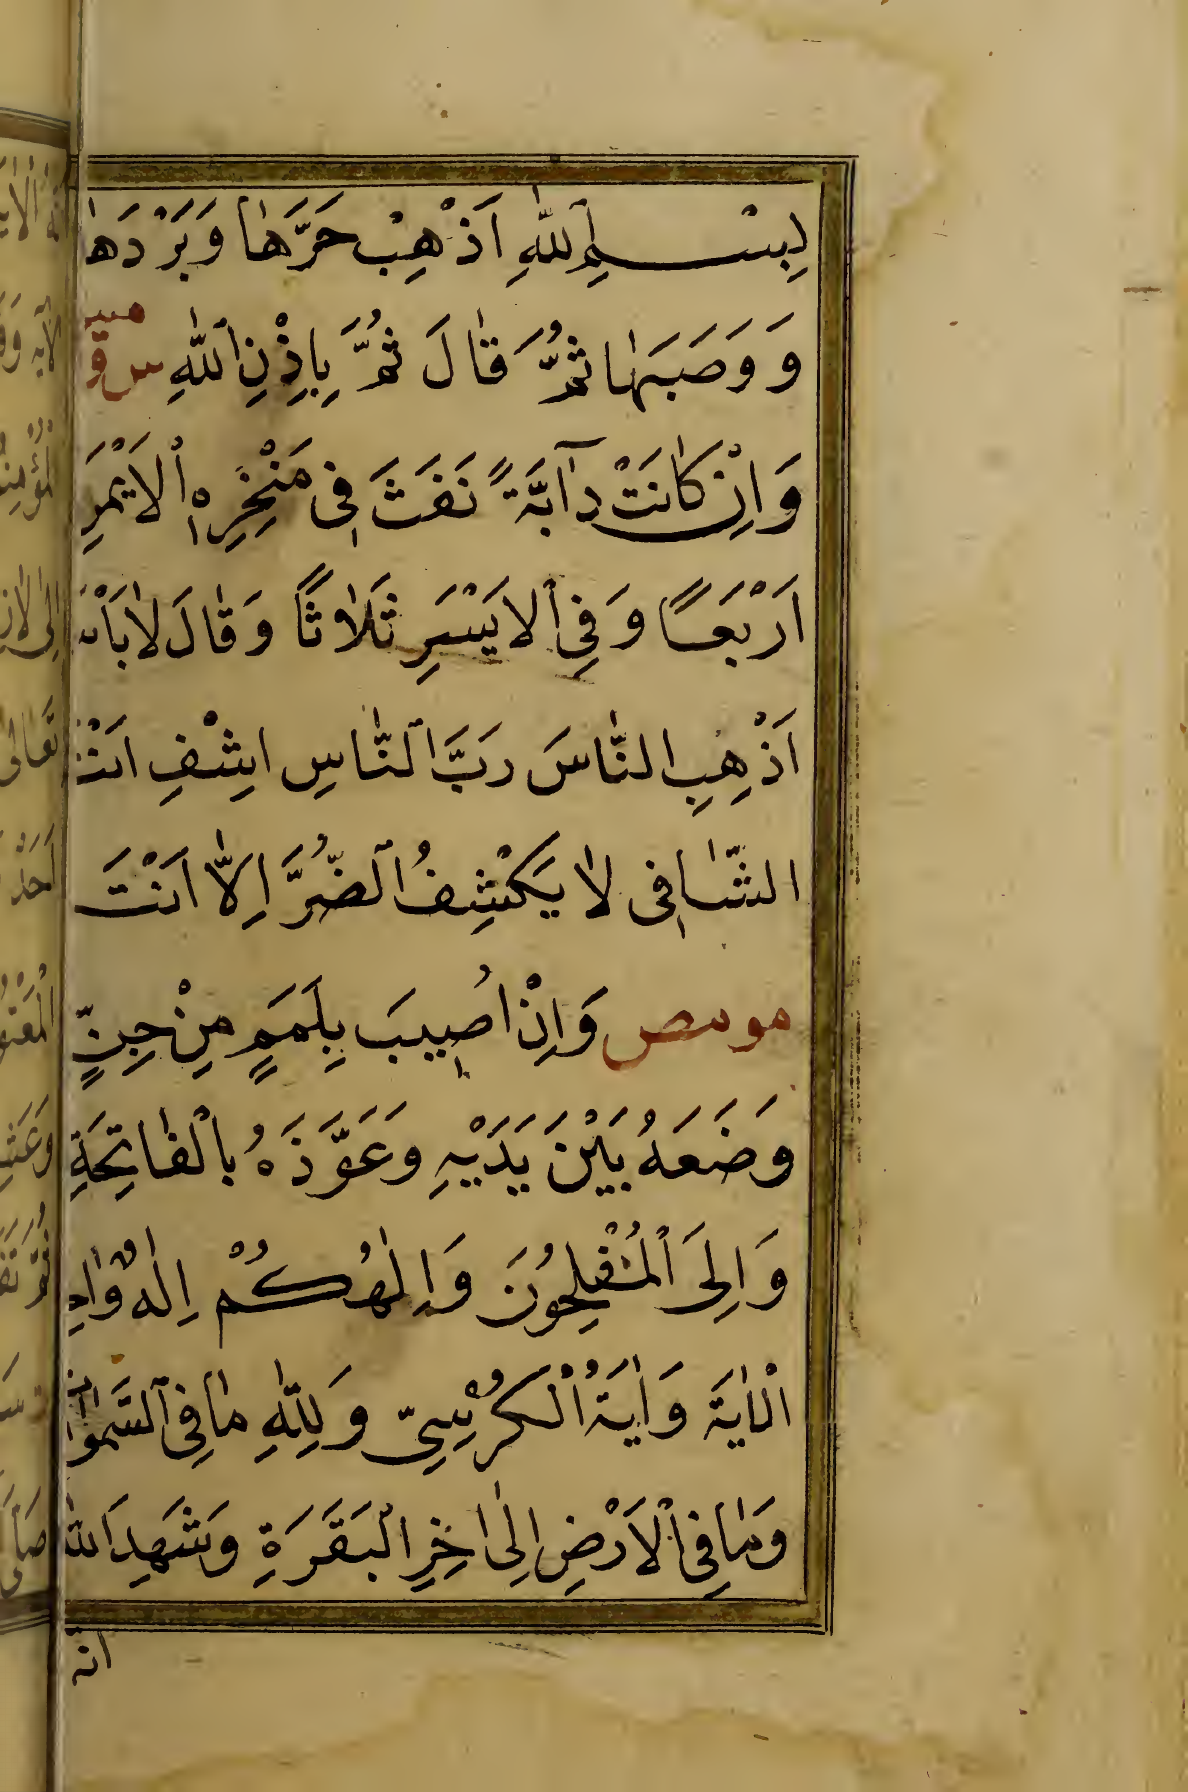 بِسْـــمِ اللّٰهِ اَذْهِبْ حَرَّهَا وَبَرْدَهَا
وَوَصَبَهَا ثُمَّ قَالَ ثُمَّ بِاِذْنِ اللّٰهِ س ق مس
وَاِنْ كَانَتْ دَآبَّةً نَفَثَ فِى مَنْخِرِهِ الْاَيْمَنِ
اَرْبَعًا وَفِى الْاَيْسَرِ ثَلَاثًا وَقَالَ لَا بَاْسَ
اَذْهِبِ النَّاسَ رَبَّ النَّاسِ اِشْفِ اَنْتَ
الشَّافِى لَا يَكْشِفُ الضُّرَّ اِلَّا اَنْتَ
مومص وَاِنْ اُصِيبَ بِلَمَمٍ مِنْ جِنٍّ
وَضَعَهُ بَيْنَ يَدَيْهِ وَعَوَّذَهُ بِالْفَاتِحَةِ
وَاِلَى الْمُفْلِحُونَ وَاِلٰهُكُمْ اِلٰهٌ وَاحِ
الْاٰيَةَ وَاٰيَةُ الْكُرْسِىِّ وَلِلّٰهِ مَا فِى السَّمٰوَاتِ
وَمَا فِى الْاَرْضِ اِلٰى اٰخِرِ الْبَقَرَةِ وَشَهِدَ اللّٰهُ
انّه